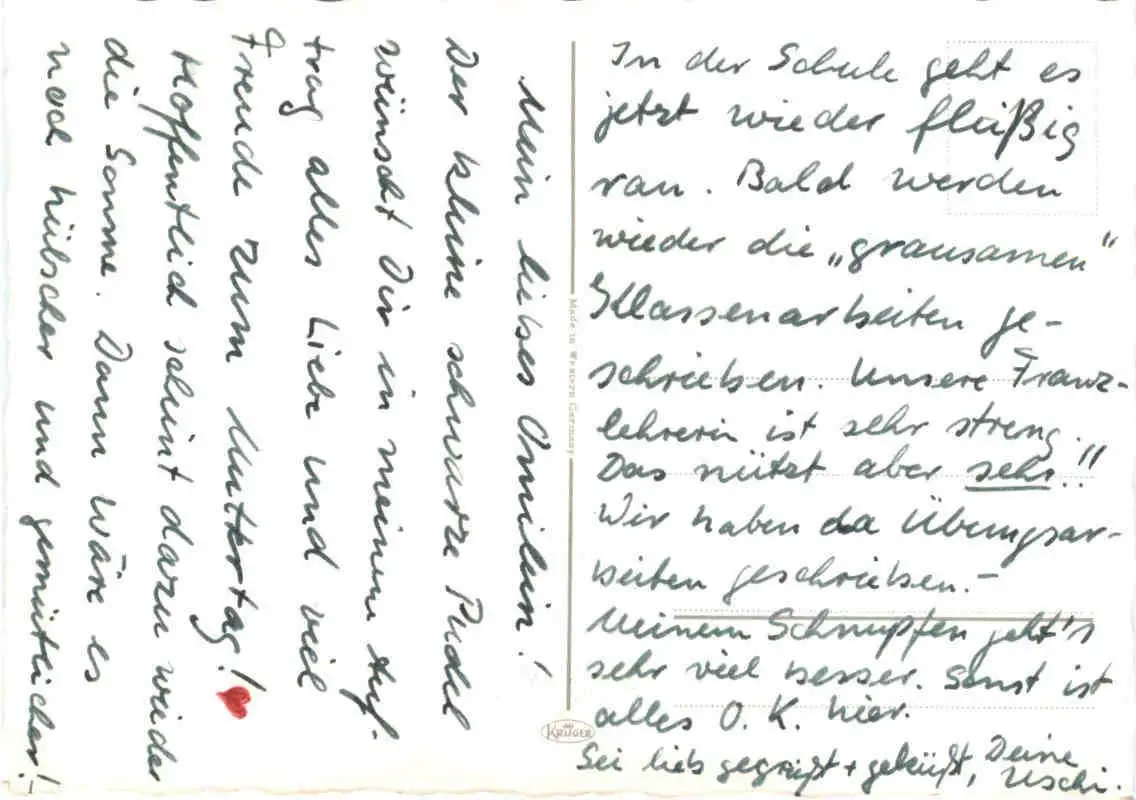 Mein liebes Omilein!
Der kleine schwarze Pudel
wünscht Dir in meinem Auf-
trag alles Liebe und viel
Freude zum Muttertag!
Hoffentlich scheint dazu wieder
die Sonne. Dann wäre es
noch hübscher und gemütlicher! –
In der Schule geht es
jetzt wieder fleißig
ran. Bald werden
wieder die „grausamen“
Klassenarbeiten ge-
schrieben. Unsere Franz-
lehrerin ist sehr streng.
Das nützt aber sehr!!
Wir haben da Übungsar-
beiten geschrieben. –
Meinem Schnupfen geht's
sehr viel besser. Sonst ist
alles O. K. hier.
Sei lieb gegrüßt + geküßt, Deine
Uschi.
Made in Western Germany
KRÜGER